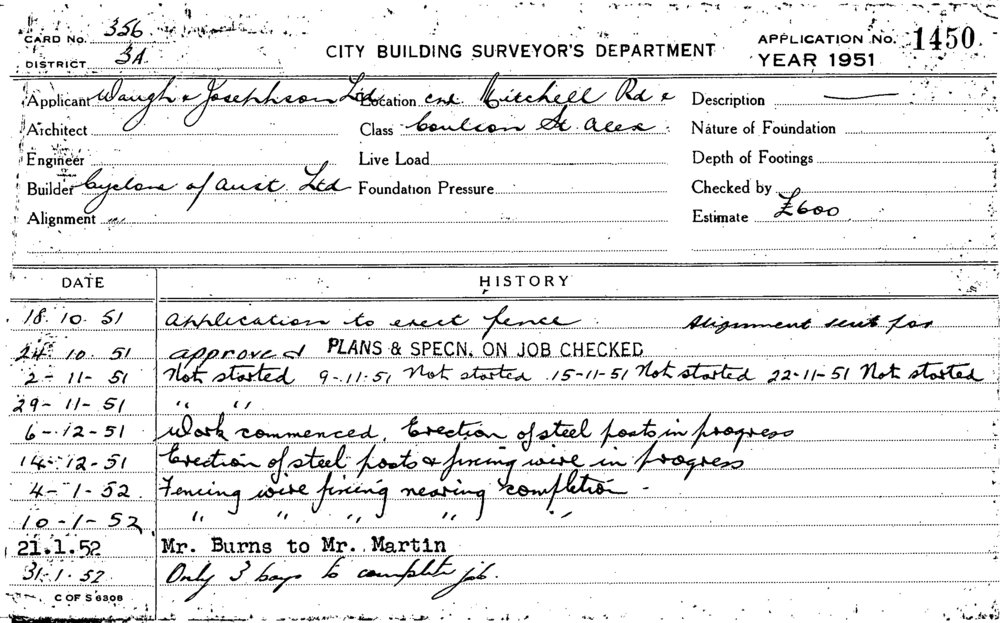 CARD No. 356
DISTRICT 3A
CITY BUILDING SURVEYOR'S DEPARTMENT
APPLICATION No. 1450
YEAR 1951
Applicant Waugh & Josephson Ltd Location cnr. Mitchell Rd & Description
Architect Class Coulson St. Alex. Nature of Foundation
Engineer Live Load Depth of Footings
Builder Cyclone of Aust. Ltd Foundation Pressure Checked by
Alignment " Estimate £600
DATE HISTORY
18. 10. 51 Application to erect fence Alignment sent for
24. 10. 51 approved PLANS & SPECN. ON JOB CHECKED
2 - 11 - 51 Not started 9-11-51 Not started 15-11-51 Not started 22-11-51 Not started
29 - 11 - 51 " "
6 - 12 - 51 Work commenced. Erection of steel posts in progress
14 - 12 - 51 Erection of steel posts & fixing wire in progress
4 - 1 - 52 Fencing wire fixing nearing completion -
10 - 1 - 52 " " " " "
21.1.52 Mr. Burns to Mr. Martin
31. 1. 52 Only 3 bays to complete job.
C OF S 6308